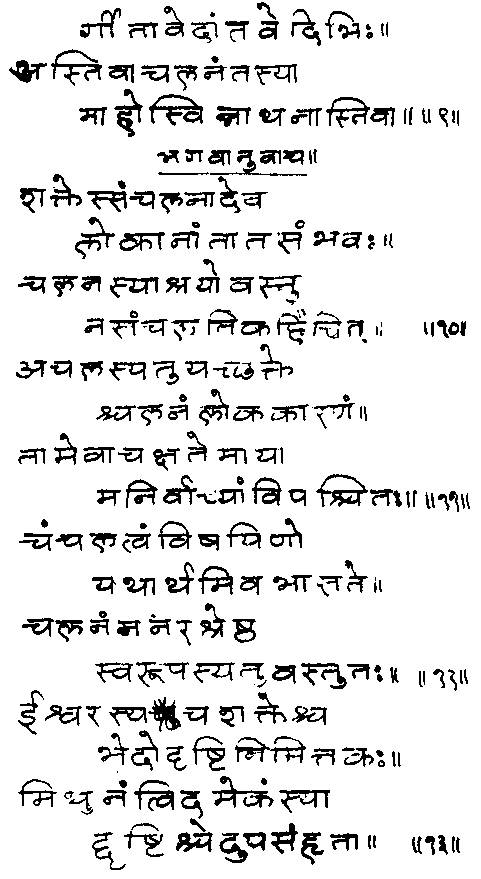 र्गीतावेदांतवेदिभिः॥
अस्तिवाचलनंतस्या
माहोस्विन्नाथनास्तिवा॥॥९॥
भगवानुवाच॥
शक्तेस्संचलनादेव
लोकानांतातसंभवः॥
चलनस्याश्रयोवस्तु
नसंचलतिकर्हिचित्॥ ॥१०॥
अचलस्यतुयच्छक्ते
श्चलनंलोककारणं॥
तामेवाचक्षतेमाया
मनिर्वाच्यांविपश्चितः॥॥११॥
चंचलत्वंविषयिणो
यथार्थमिवभासते॥
चलनंननंरश्रेष्ठ
स्वरूपस्यतुवस्तुतः॥ ॥१२॥
ईश्वरस्यचशक्तेश्च
भेदोदृष्टिनिमित्तकः॥
मिथुनंत्विदमेकंस्या
द्दृष्टिश्चेदुपसंहृता॥ ॥१३॥